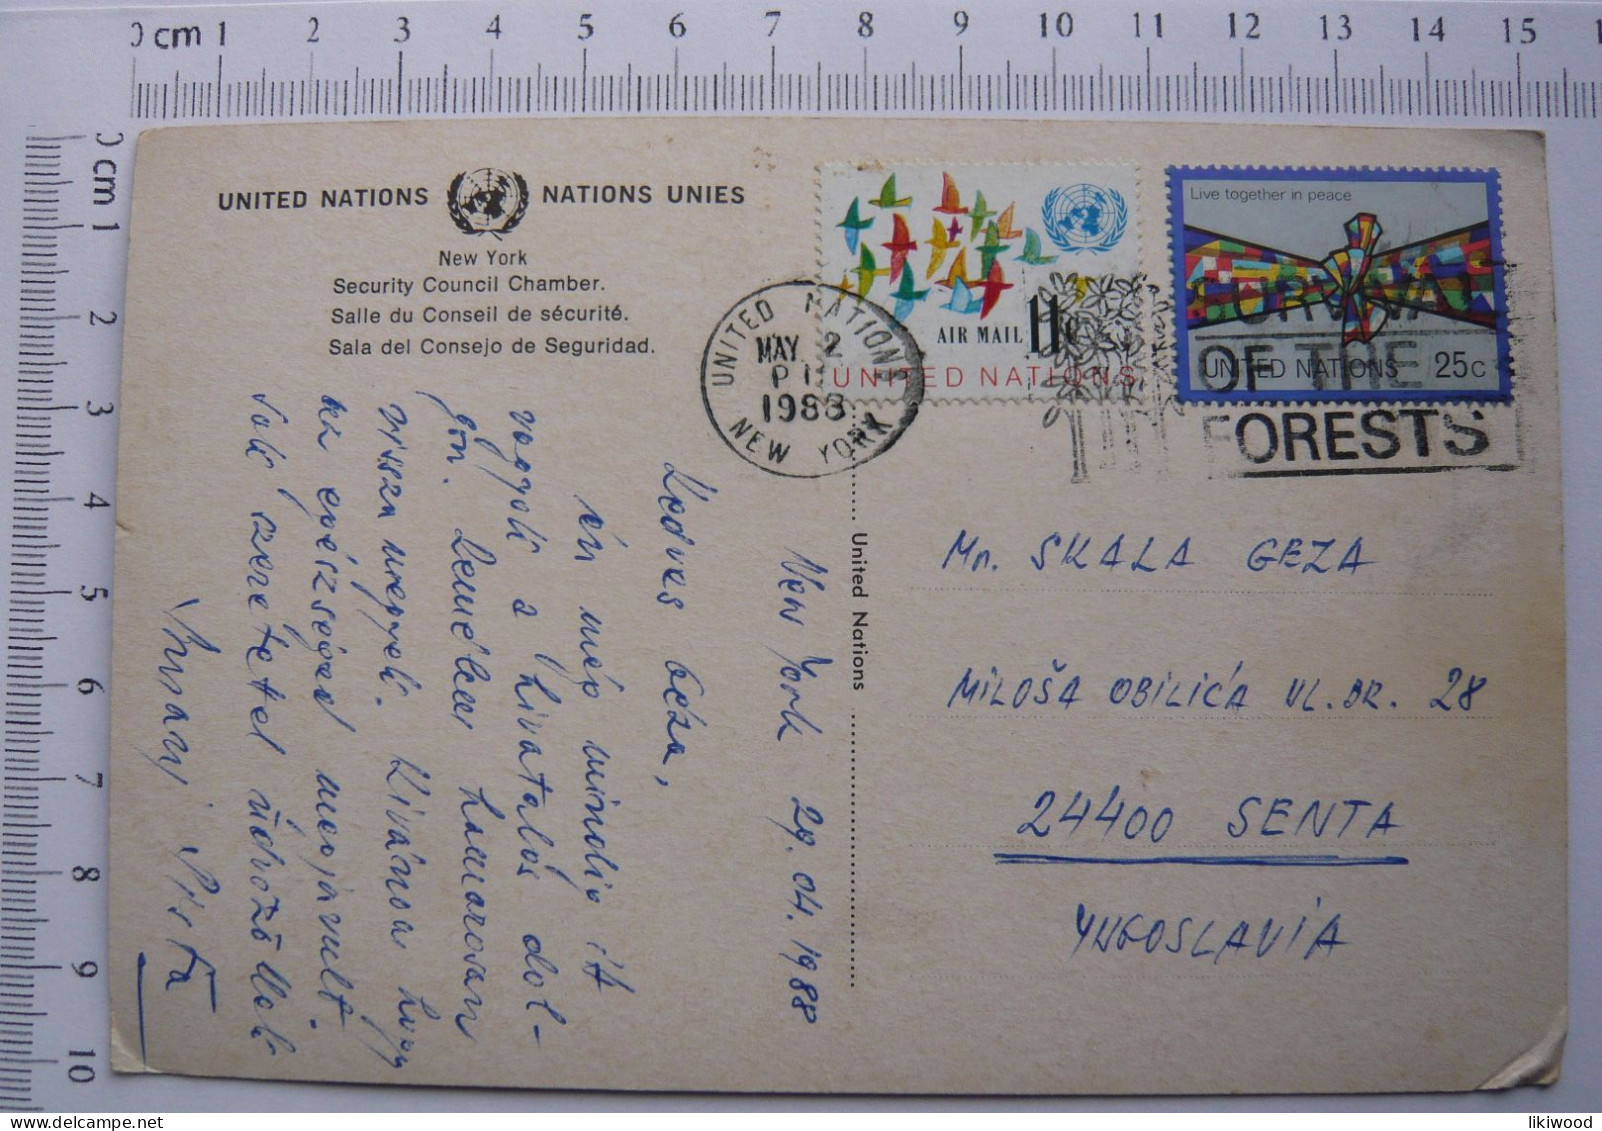 0 cm 1 2 3 4 5 6 7 8 9 10 11 12 13 14 15
0 cm 1 2 3 4 5 6 7 8 9 10
UNITED NATIONS NATIONS UNIES
New York
Security Council Chamber.
Salle du Conseil de sécurité.
Sala del Consejo de Seguridad.
AIR MAIL 11c
UNITED NATIONS
Live together in peace
UNITED NATIONS 25c
UNITED NATIONS
MAY 2
1988
NEW YORK
SURVIVAL
OF THE
FORESTS
United Nations
New York 29. 04. 1988
Kedves Géza,
én még mindig itt
vagyok a hivatalos dol-
gon. Lemélem hamarosan
vissza megyek. Kívánom hogy
az egészséged megjavult.
Sok szeretettel üdvözöllek
Pista
Mr. SKALA GEZA
MILOŠA OBILIĆA UL. BR. 28
24400 SENTA
YUGOSLAVIA
likiwood